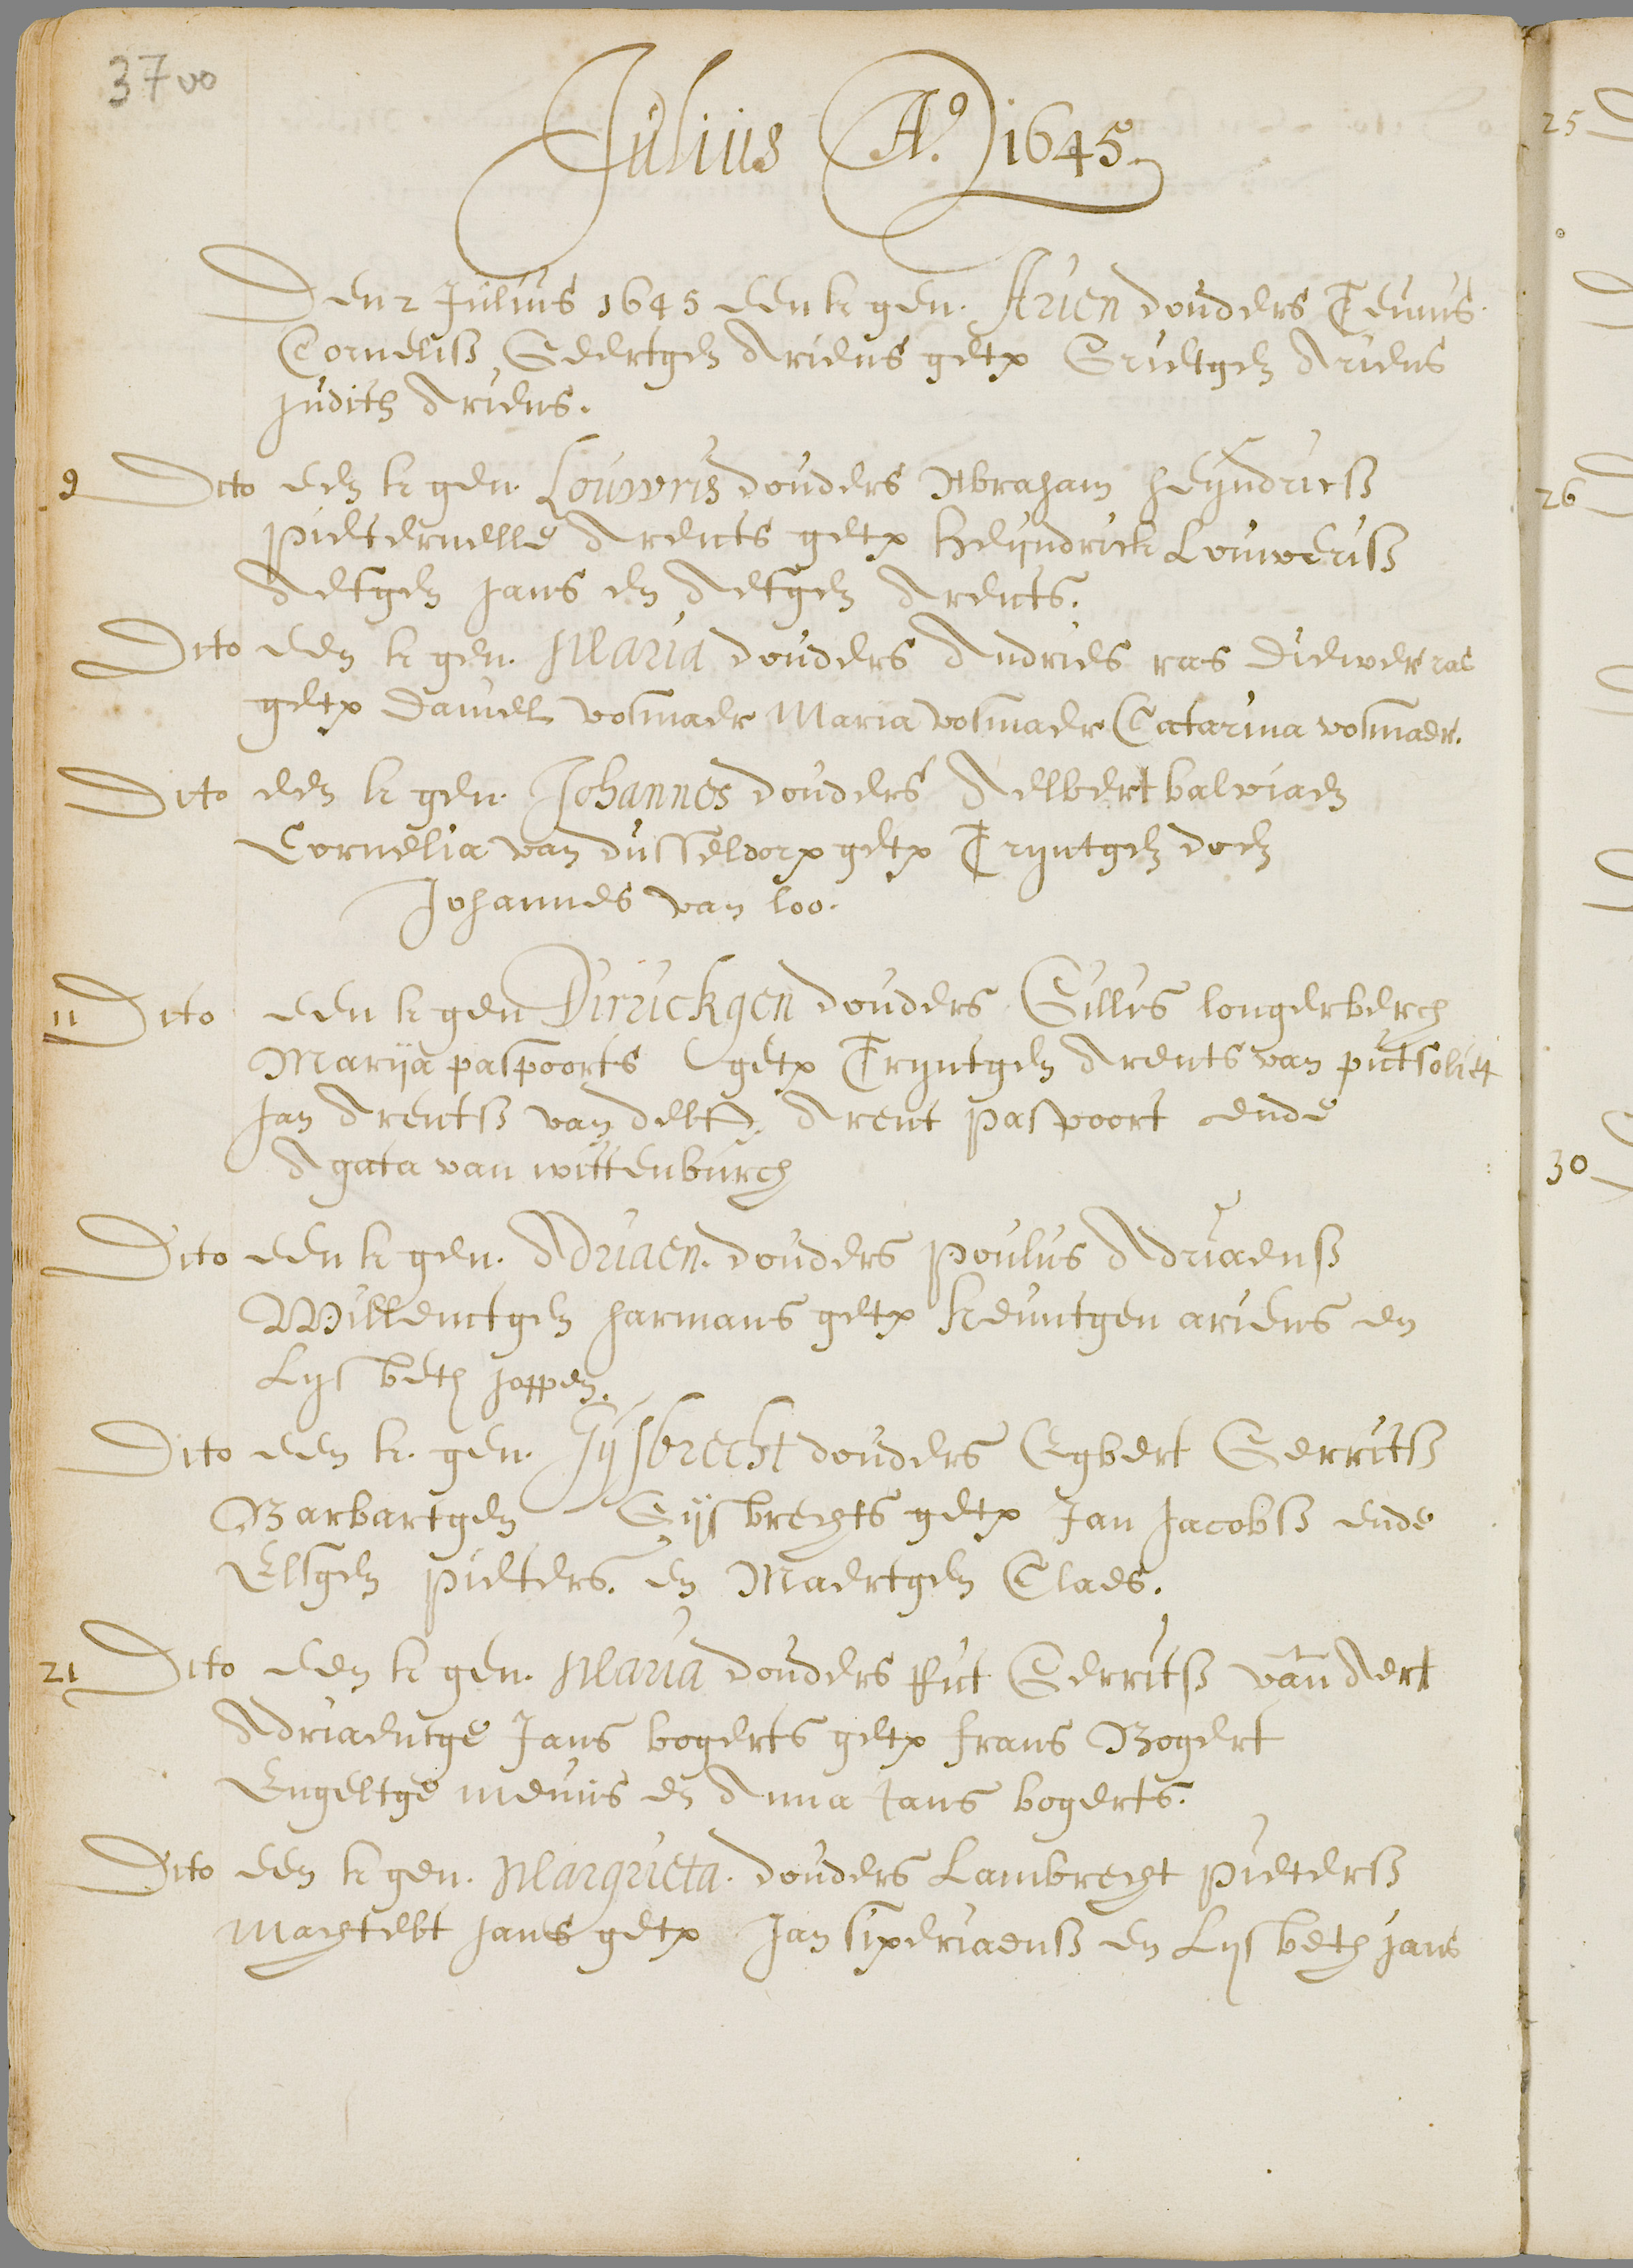 37 vo
Julius Aº. 1645.
Den 2 Julius 1645 een k gen. Arien douders Teunus.
Corneliss, Geertgen Ariens getp Grietgen Ariens
Judith Ariens.
9 Dito een k gen. Louwris douders Abraham Heyndricss
Pieternelle Arents getp Heyndrick Louweriss
Aeltgen Jans en Aeltgen Arents.
Dito een k gen. Maria douders Andries ras Diewer ras
getp Daniel vosmaer Maria vosmaer Catarina vosmaer.
Dito een k gen. Johannes douders Aelbert balviaen
Cornelia van dusseldorp getp Tryntgen doen
Johannes van loo.
11 Dito een k gen Dirrickgen douders Gillis longerberch
Marya paspoorts getp Tryntgen Arents van
Jan Arentss van delft, Arent paspoort ende
Agata van wittenburch
Dito een k gen. Adriaen. douders Poulus Adriaenss
Willemtgen harmans getp kenintgen ariens en
Lysbeth Joppen.
Dito een k. gen. Gysbrecht douders Egbert Gerritss
Barbartgen Gysbrechts getp Jan Jacobss ende
Elsgen Pieters. en Maertgen Claes.
21 Dito een k gen. Maria douders Gerritss van Aert
Adriaentge Jans bogerts getp frans Bogert
Engeltge meuus en Anna Jans bogerts.
Dito een k gen. Margrieta. douders Lambrecht Pieterss
Machtelt Jans getp Jan en Lysbeth Jans
25
26
30